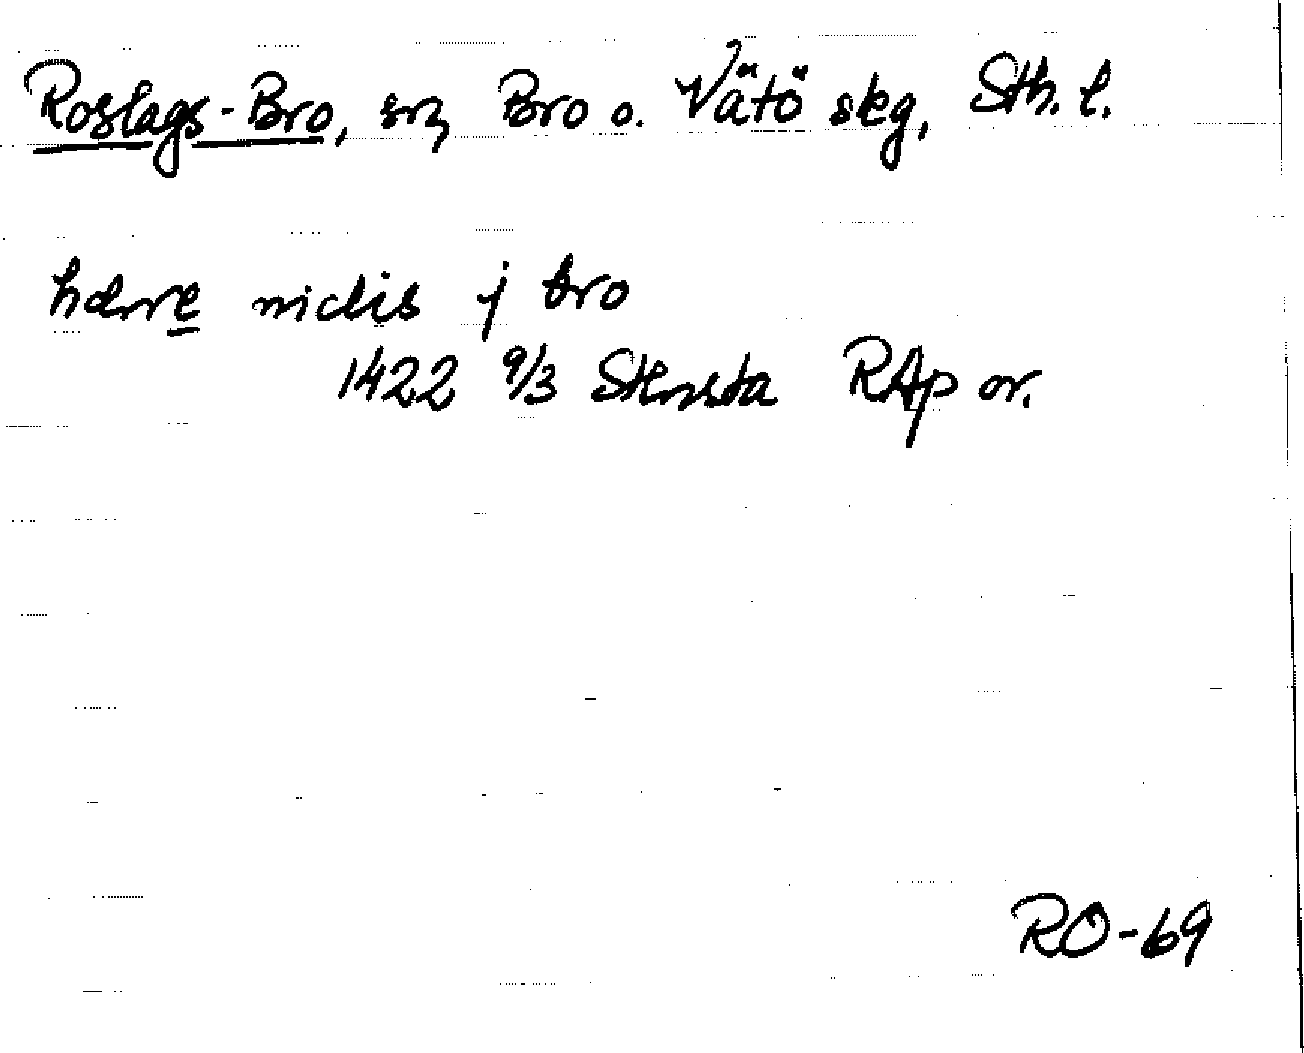 Roslags-Bro, sn, Bro o. Vätö skg, Sth. l.
hærre niclis j bro
1422 9/3 RAp or.
RO-69